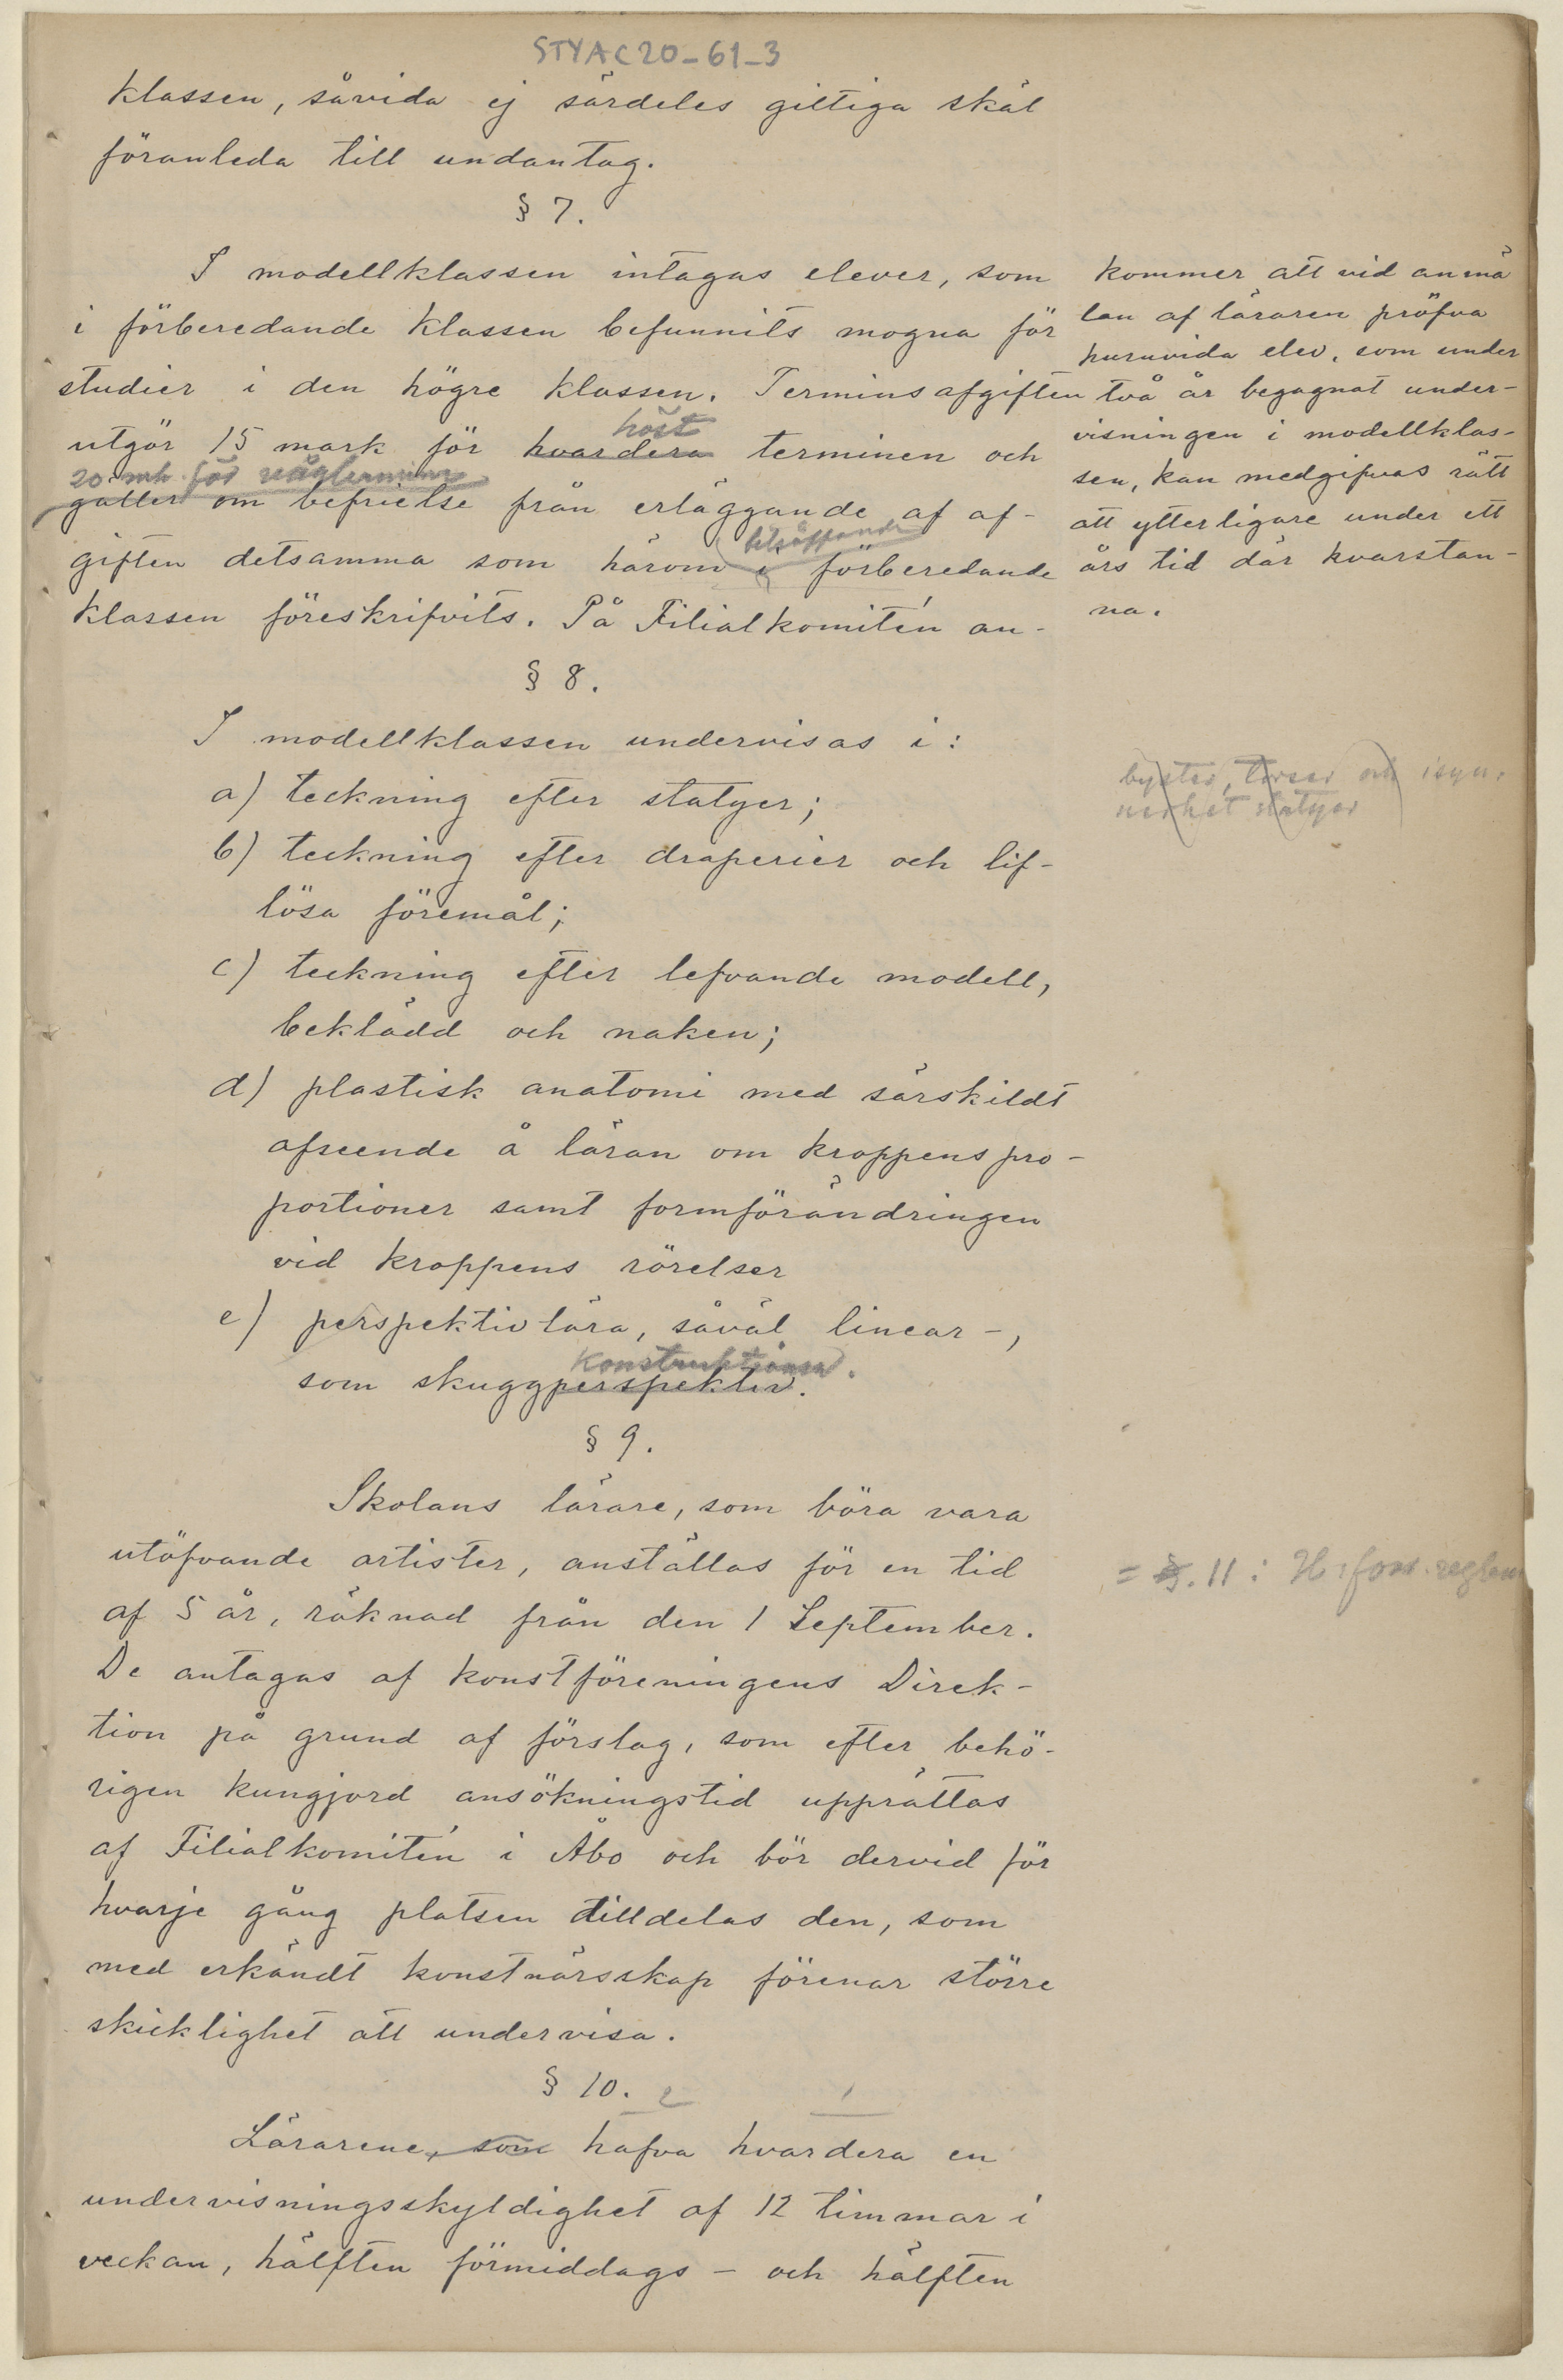 STYAC20-61-3
klassen, såvida ej särdeles giltiga skäl
föranleda till undantag.
§ 7.
I modellklassen intagas elever, som
i förberedande klassen befunnits mogna för
studier i den högre klassen. Terminsafgiften
höst
utgör 15 mark för hvardera terminen och
20 mk för vårterminen
gäller om befrielse från erläggande af af-
beträffande
giften detsamma som härom i förberedande
klassen föreskrifvits. På Filialkomitén an-
kommer att vid anmä
lan af läraren pröfva
huruvida elev, som under
två år begagnat under-
visningen i modellklas-
sen, kan medgifvas rätt
att ytterligare under ett
års tid där kvarstan-
na.
§ 8.
I modellklassen undervisas i:
a) teckning efter statyer;
byster, torser och isyn-
nerhet statyer
b) teckning efter draperier och lif-
lösa föremål;
c) teckning efter lefvande modell,
beklädd och naken;
d) plastisk anatomi med särskildt
afseende å läran om kroppens pro-
portioner samt formförändringen
vid kroppens rörelser
e) perspektivlära, såväl linear-,
konstruktioner.
som skuggperspektiv.
§ 9.
Skolans lärare, som böra vara
utöfvande artister, anställas för en tid
= §. 11 i H:fors reglem
af 5 år, räknad från den 1 September.
De antagas af konstföreningens Direk-
tion på grund af förslag, som efter behö-
rigen kungjord ansökningstid upprättas
af Filialkomitén i Åbo och bör dervid för
hvarje gång platsen tilldelas den, som
med erkändt konstnärsskap förenar större
skicklighet att undervisa.
§ 10.
2 1
Lärarene, som hafva hvardera en
undervisningsskyldighet af 12 timmar i
veckan, hälften förmiddags- och hälften